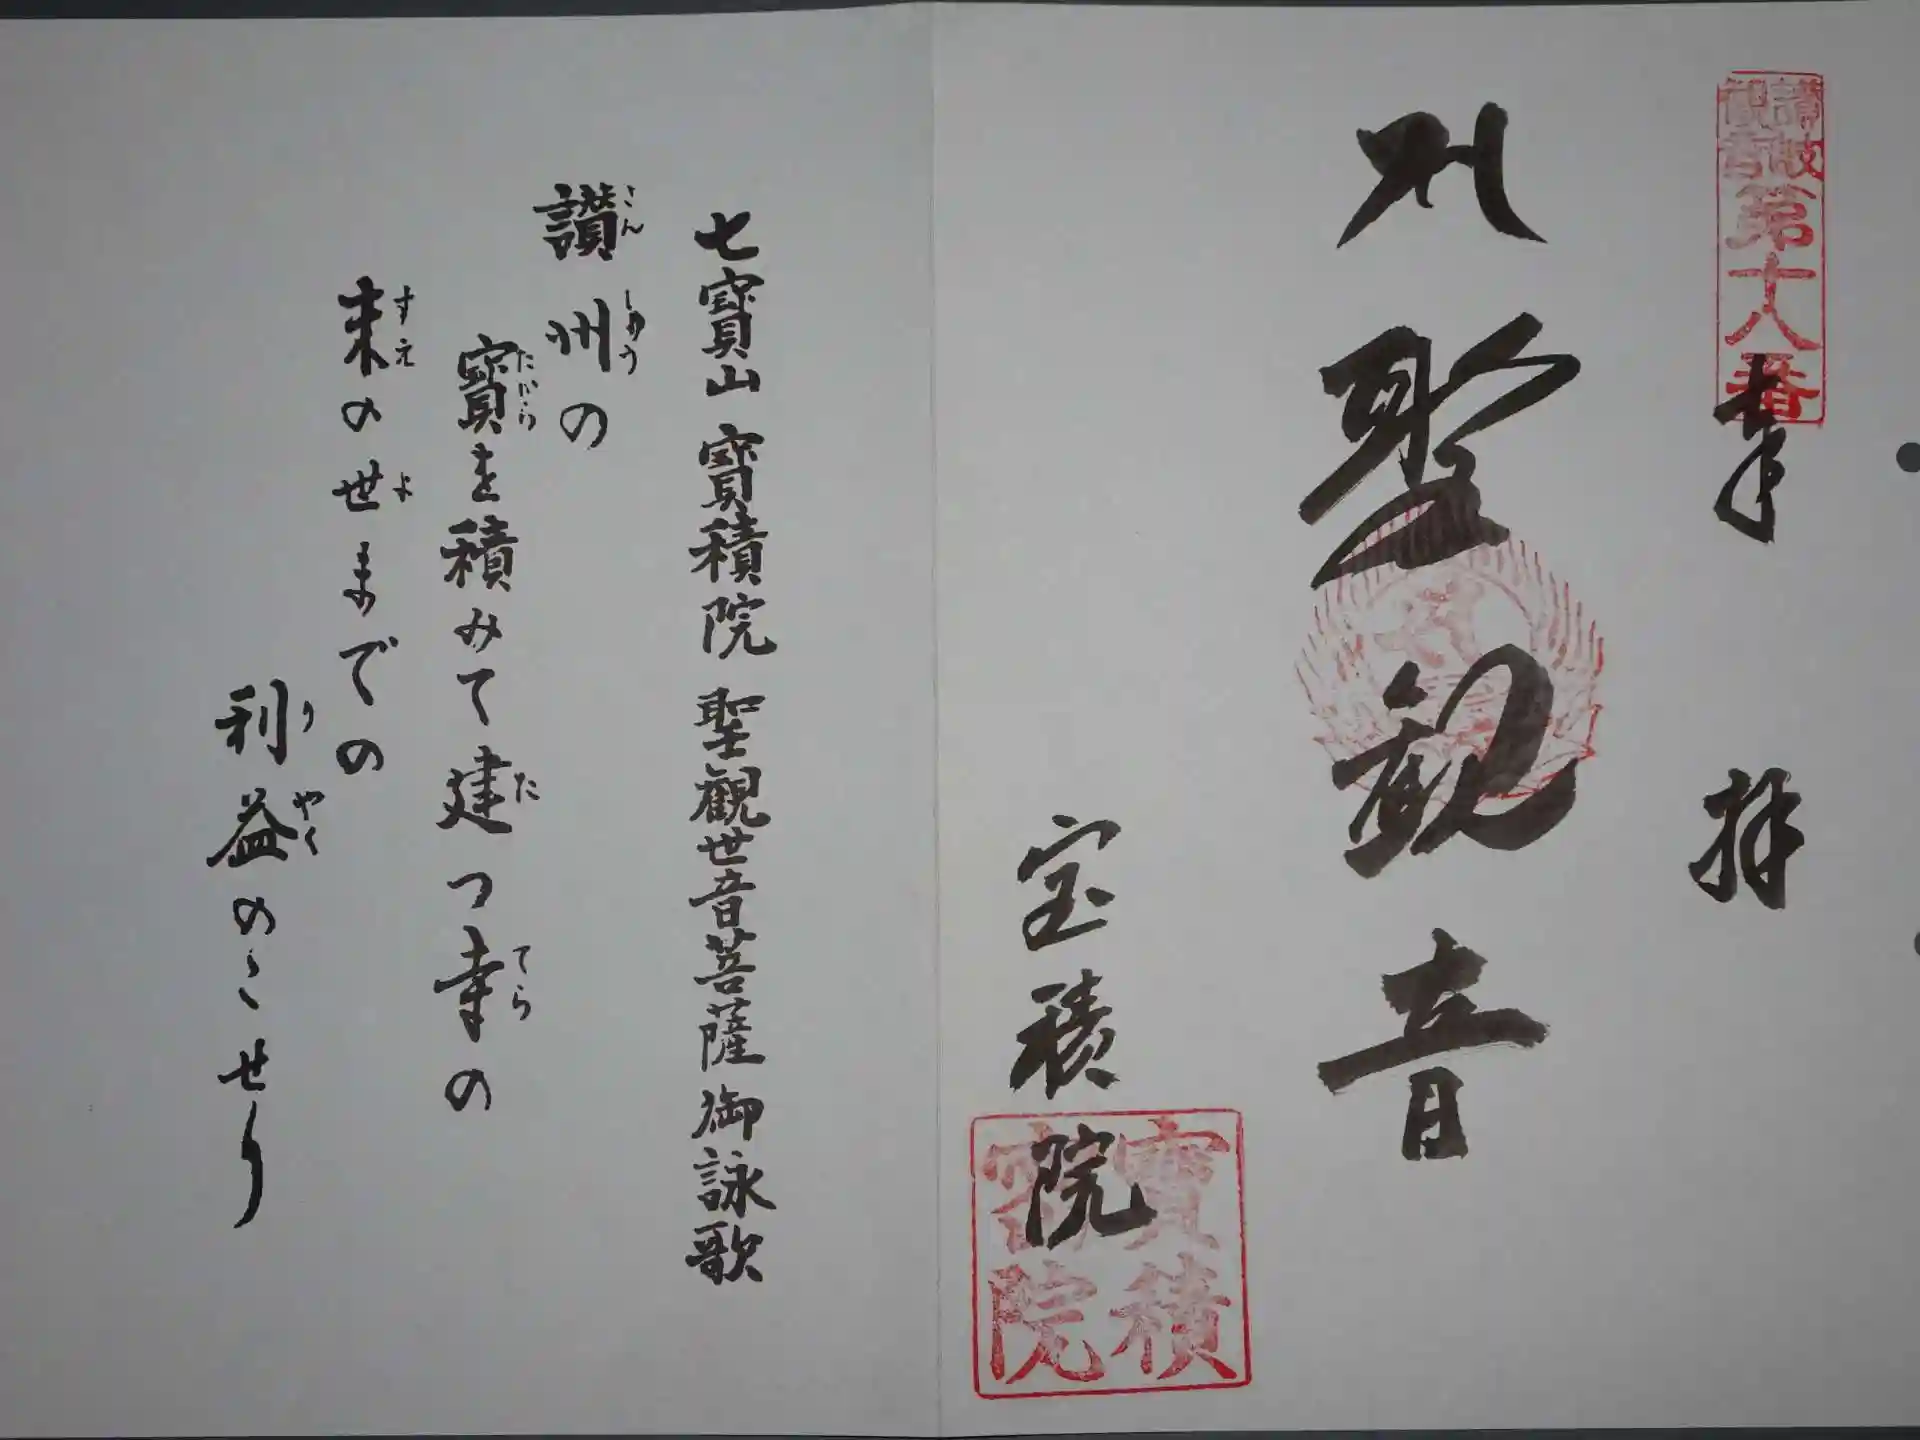 讃岐観音第十八番
奉拝
聖観音
宝積院
寶積密院
七寶山 寶積院 聖観世音菩薩 御詠歌
讃州の
さんしゅう
寶を積みて建つ寺の
たから た てら
来の世までの
すえ よ
利益のこせり
りやく